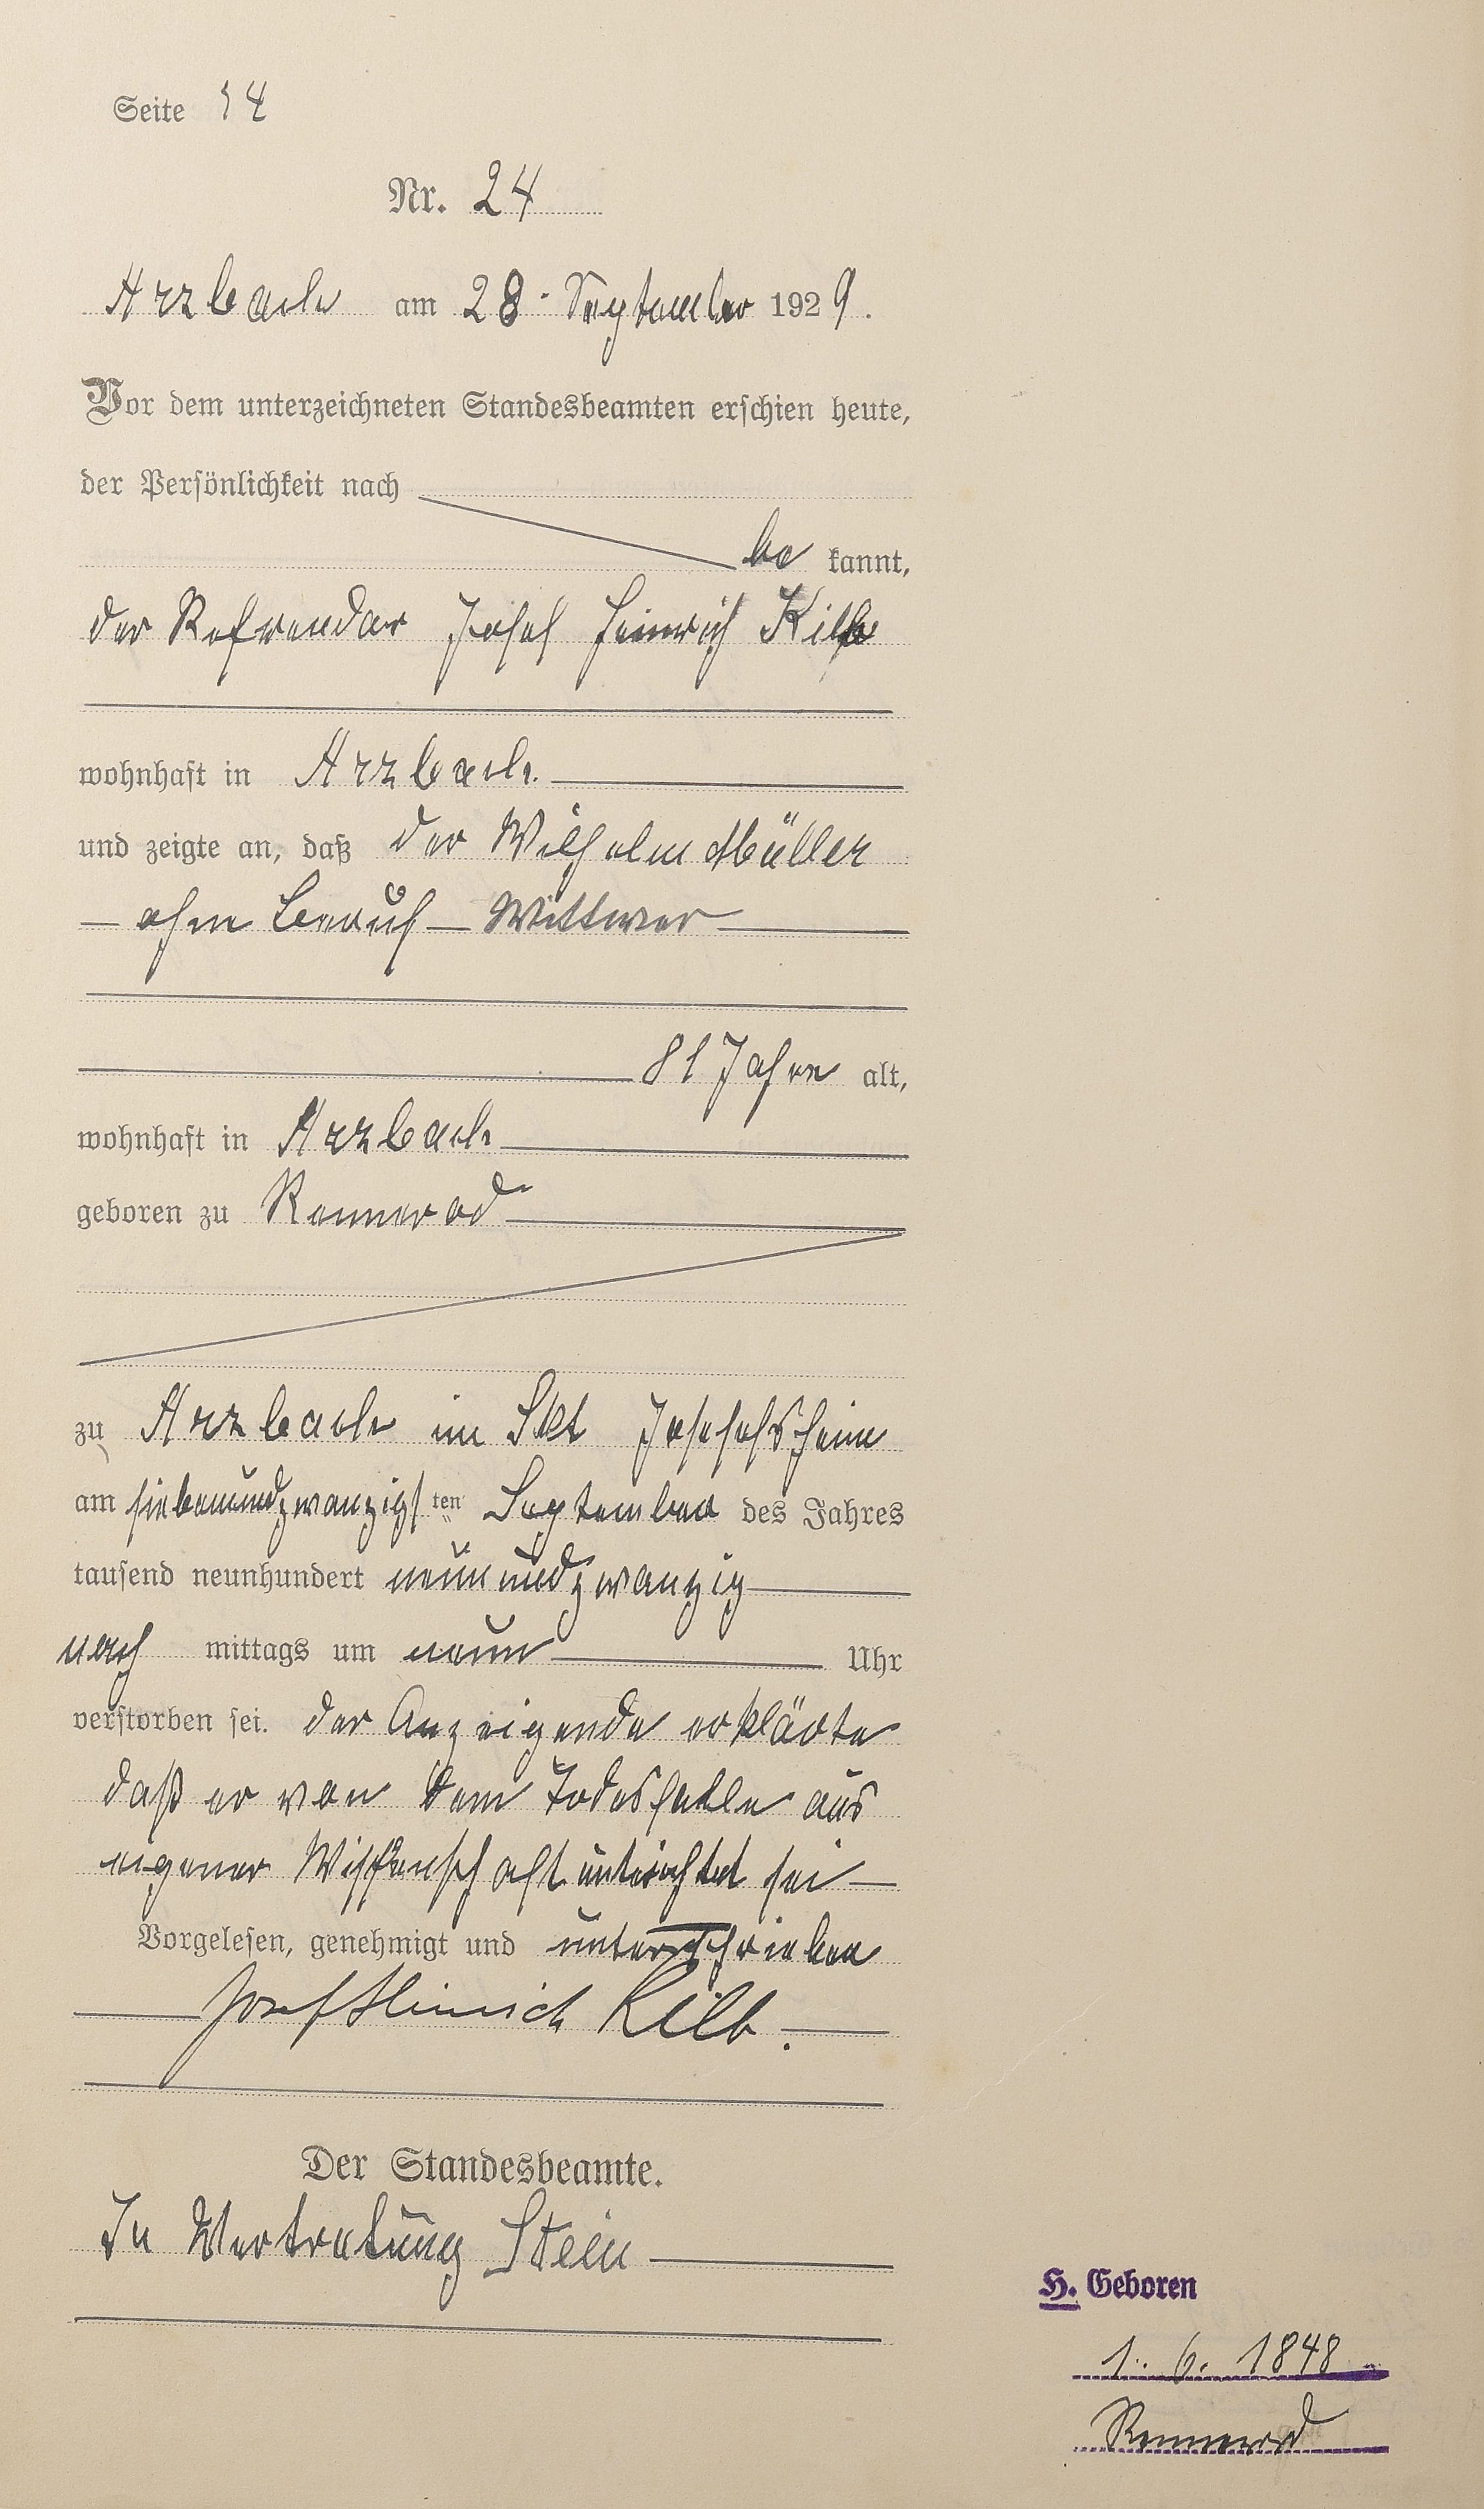 Seite 14
Nr. 24
Arzbach am 28. September 1929.
Vor dem unterzeichneten Standesbeamten erschien heute,
der Persönlichkeit nach
be kannt,
der Refrendar Josef Heinrich Kilb
wohnhaft in Arzbach.
und zeigte an, daß der Wilhelm Müller
– ohne Beruf – Wittwer
81 Jahre alt,
wohnhaft in Arzbach
geboren zu Rennerod
zu Arzbach im Skt Josefsheim
am siebenundzwanzigsten September des Jahres
tausend neunhundert neunundzwanzig
nach mittags um neun Uhr
verstorben sei. der Anzeigende erklärte
daß er von dem Todesfalle aus
eigener Wissenschaft unterichtet sei –
Vorgelesen, genehmigt und unterschrieben
Josef Heinrich Kilb.
Der Standesbeamte.
In Vertretung Stein
H. Geboren
1. 6. 1848
Rennerod